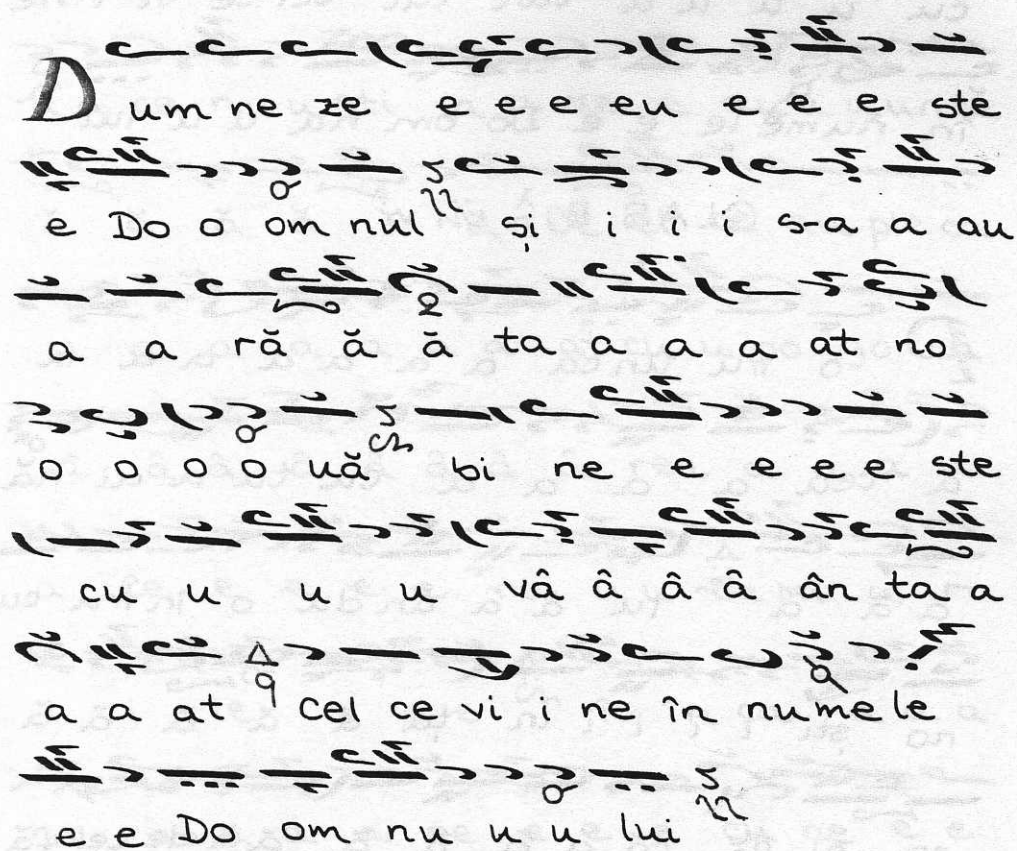 Dum ne ze e e e eu e e e ste
e Do o om nul și i i i s-a a au
a a ră ă ă ta a a a at no
o o o o uă bi ne e e e e ste
cu u u u vâ â â â ân ta a
a a at cel ce vi i ne în nu me le
e e Do om nu u u lui